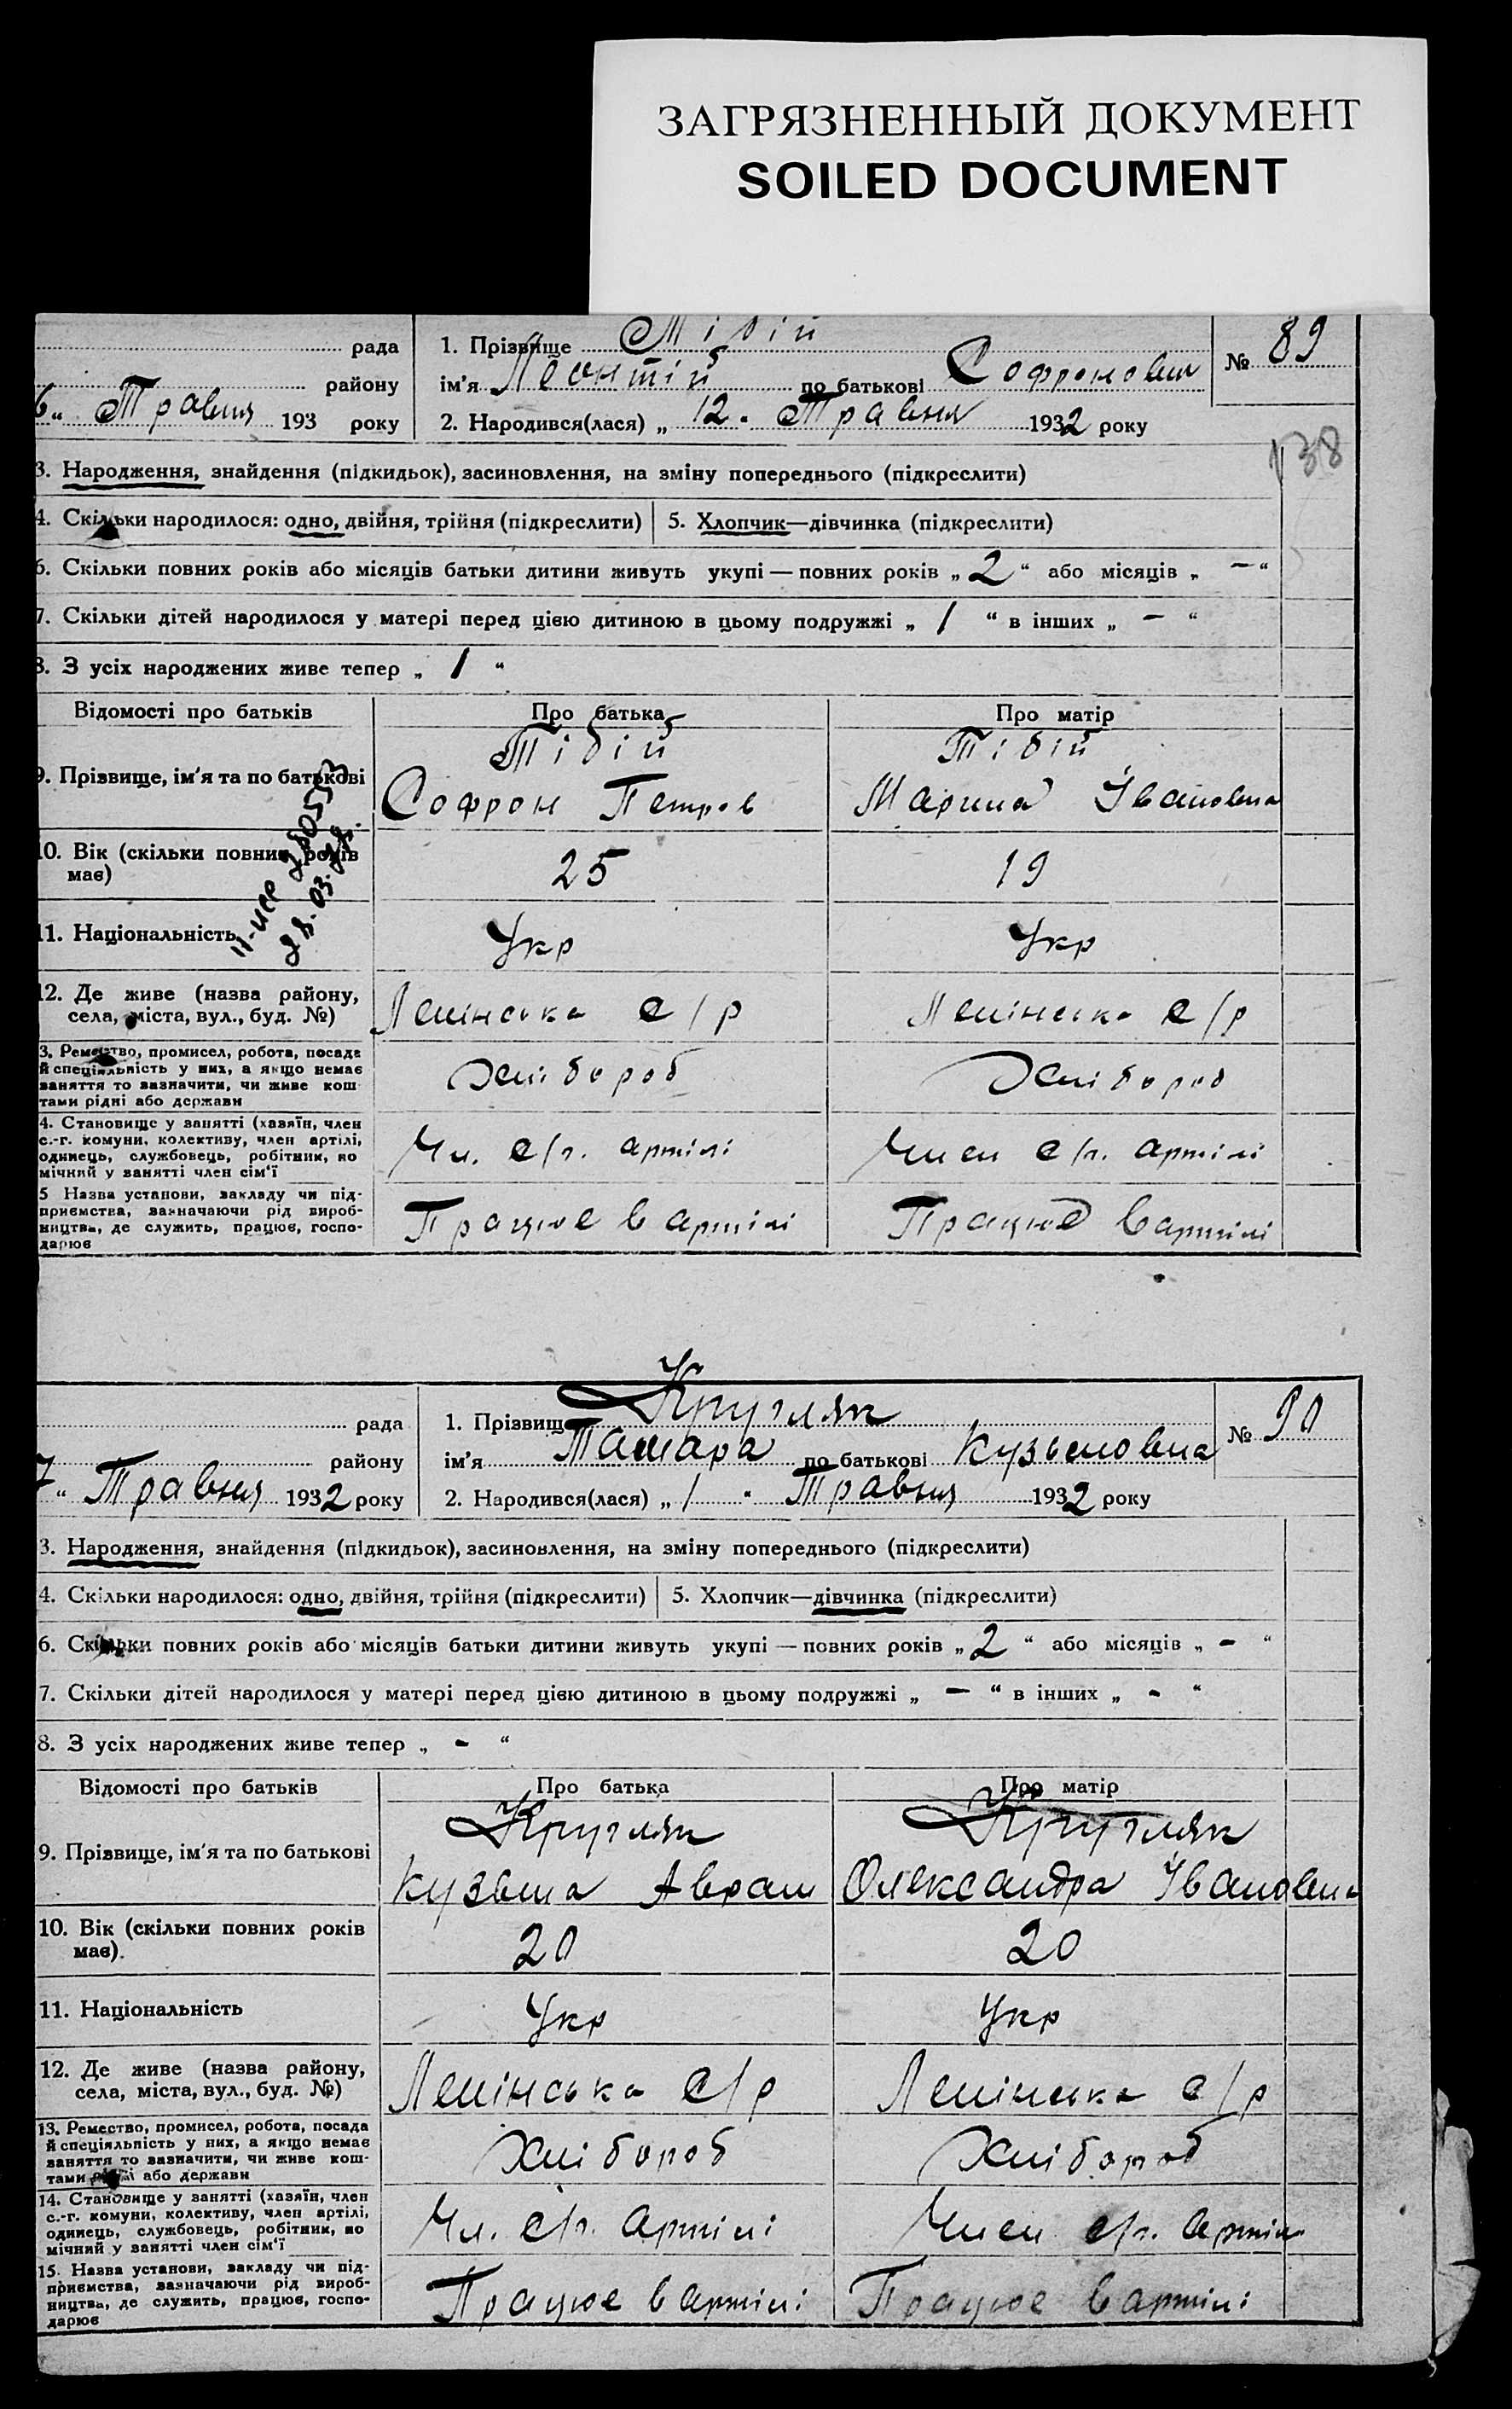 ЗАГРЯЗНЕННЫЙ ДОКУМЕНТ
SOILED DOCUMENT
рада
1. Прізвище Тібій
№ 89
району
ім'я Леонтій по батькові Софронович
6" Травня 193 року
2. Народився(лася) „ 12 " Травня 1932 року
138
3. Народження, знайдення (підкидьок), засиновлення, на зміну попереднього (підкреслити)
4. Скільки народилося: одно, двійня, трійня (підкреслити) 5. Хлопчик—дівчинка (підкреслити)
6. Скільки повних років або місяців батьки дитини живуть укупі — повних років „ 2 “ або місяців „ — “
7. Скільки дітей народилося у матері перед цією дитиною в цьому подружжі „ 1 “ в інших „ — “
8. З усіх народжених живе тепер „ 1 “
Відомості про батьків Про батька Про матір
Тібій Тібій
9. Прізвище, ім'я та по батькові Софрон Петров Марина Івановна
10. Вік (скільки повних років
має) 25 19
11. Національність Укр Укр
12. Де живе (назва району,
села, міста, вул., буд. №) Ленінська с/р Ленінська с/р
3. Ремество, промисел, робота, посада
й спеціяльність у них, а якщо немає
заняття то зазначити, чи живе кош-
тами рідні або держави
Хлібороб Хлібороб
4. Становище у занятті (хазяїн, член
с.-г. комуни, колективу, член артілі,
одинець, службовець, робітник, по
мічний у занятті член сім'ї
Чл. с/г. артілі Член с/г. артілі
5 Назва установи, закладу чи під-
приємства, зазначаючи рід вироб-
ництва, де служить, працює, госпо-
дарює
Працює в артілі Працює в артілі
рада
1. Прізвище Кругляк
№ 90
району
ім'я Тамара по батькові Кузьмовна
7 “ Травня 1932 року
2. Народився(лася) „ 1 “ Травня 1932 року
3. Народження, знайдення (підкидьок), засиновлення, на зміну попереднього (підкреслити)
4. Скільки народилося: одно, двійня, трійня (підкреслити) 5. Хлопчик—дівчинка (підкреслити)
6. Скільки повних років або місяців батьки дитини живуть укупі — повних років „ 2 “ або місяців „ - “
7. Скільки дітей народилося у матері перед цією дитиною в цьому подружжі „ — “ в інших „ - “
8. З усіх народжених живе тепер „ - “
Відомості про батьків Про батька Про матір
Кругляк Кругляк
9. Прізвище, ім'я та по батькові Кузьма Аврам Олександра Івановна
10. Вік (скільки повних років
має). 20 20
11. Національність Укр Укр
12. Де живе (назва району,
села, міста, вул., буд. №) Ленінська с/р Ленінська с/р
13. Ремество, промисел, робота, посада
й спеціяльність у них, а якщо немає
заняття то зазначити, чи живе кош-
тами рідні або держави
Хлібороб Хлібороб
14. Становище у занятті (хазяїн, член
с.-г. комуни, колективу, член артілі,
одинець, службовець, робітник, по
мічний у занятті член сім'ї
Чл. с/г. артілі Член с/г. артілі
15. Назва установи, закладу чи під-
приємства, зазначаючи рід вироб-
ництва, де служить, працює, госпо-
дарює
Працює в артілі Працює в артілі